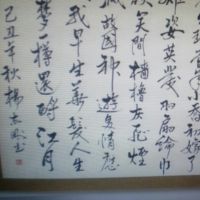 小喬初嫁了
姿英發羽扇綸巾
笑間檣櫓灰飛煙
故國神遊多情應
我早生華髮人生
夢一樽還酹江月
己丑年秋楊